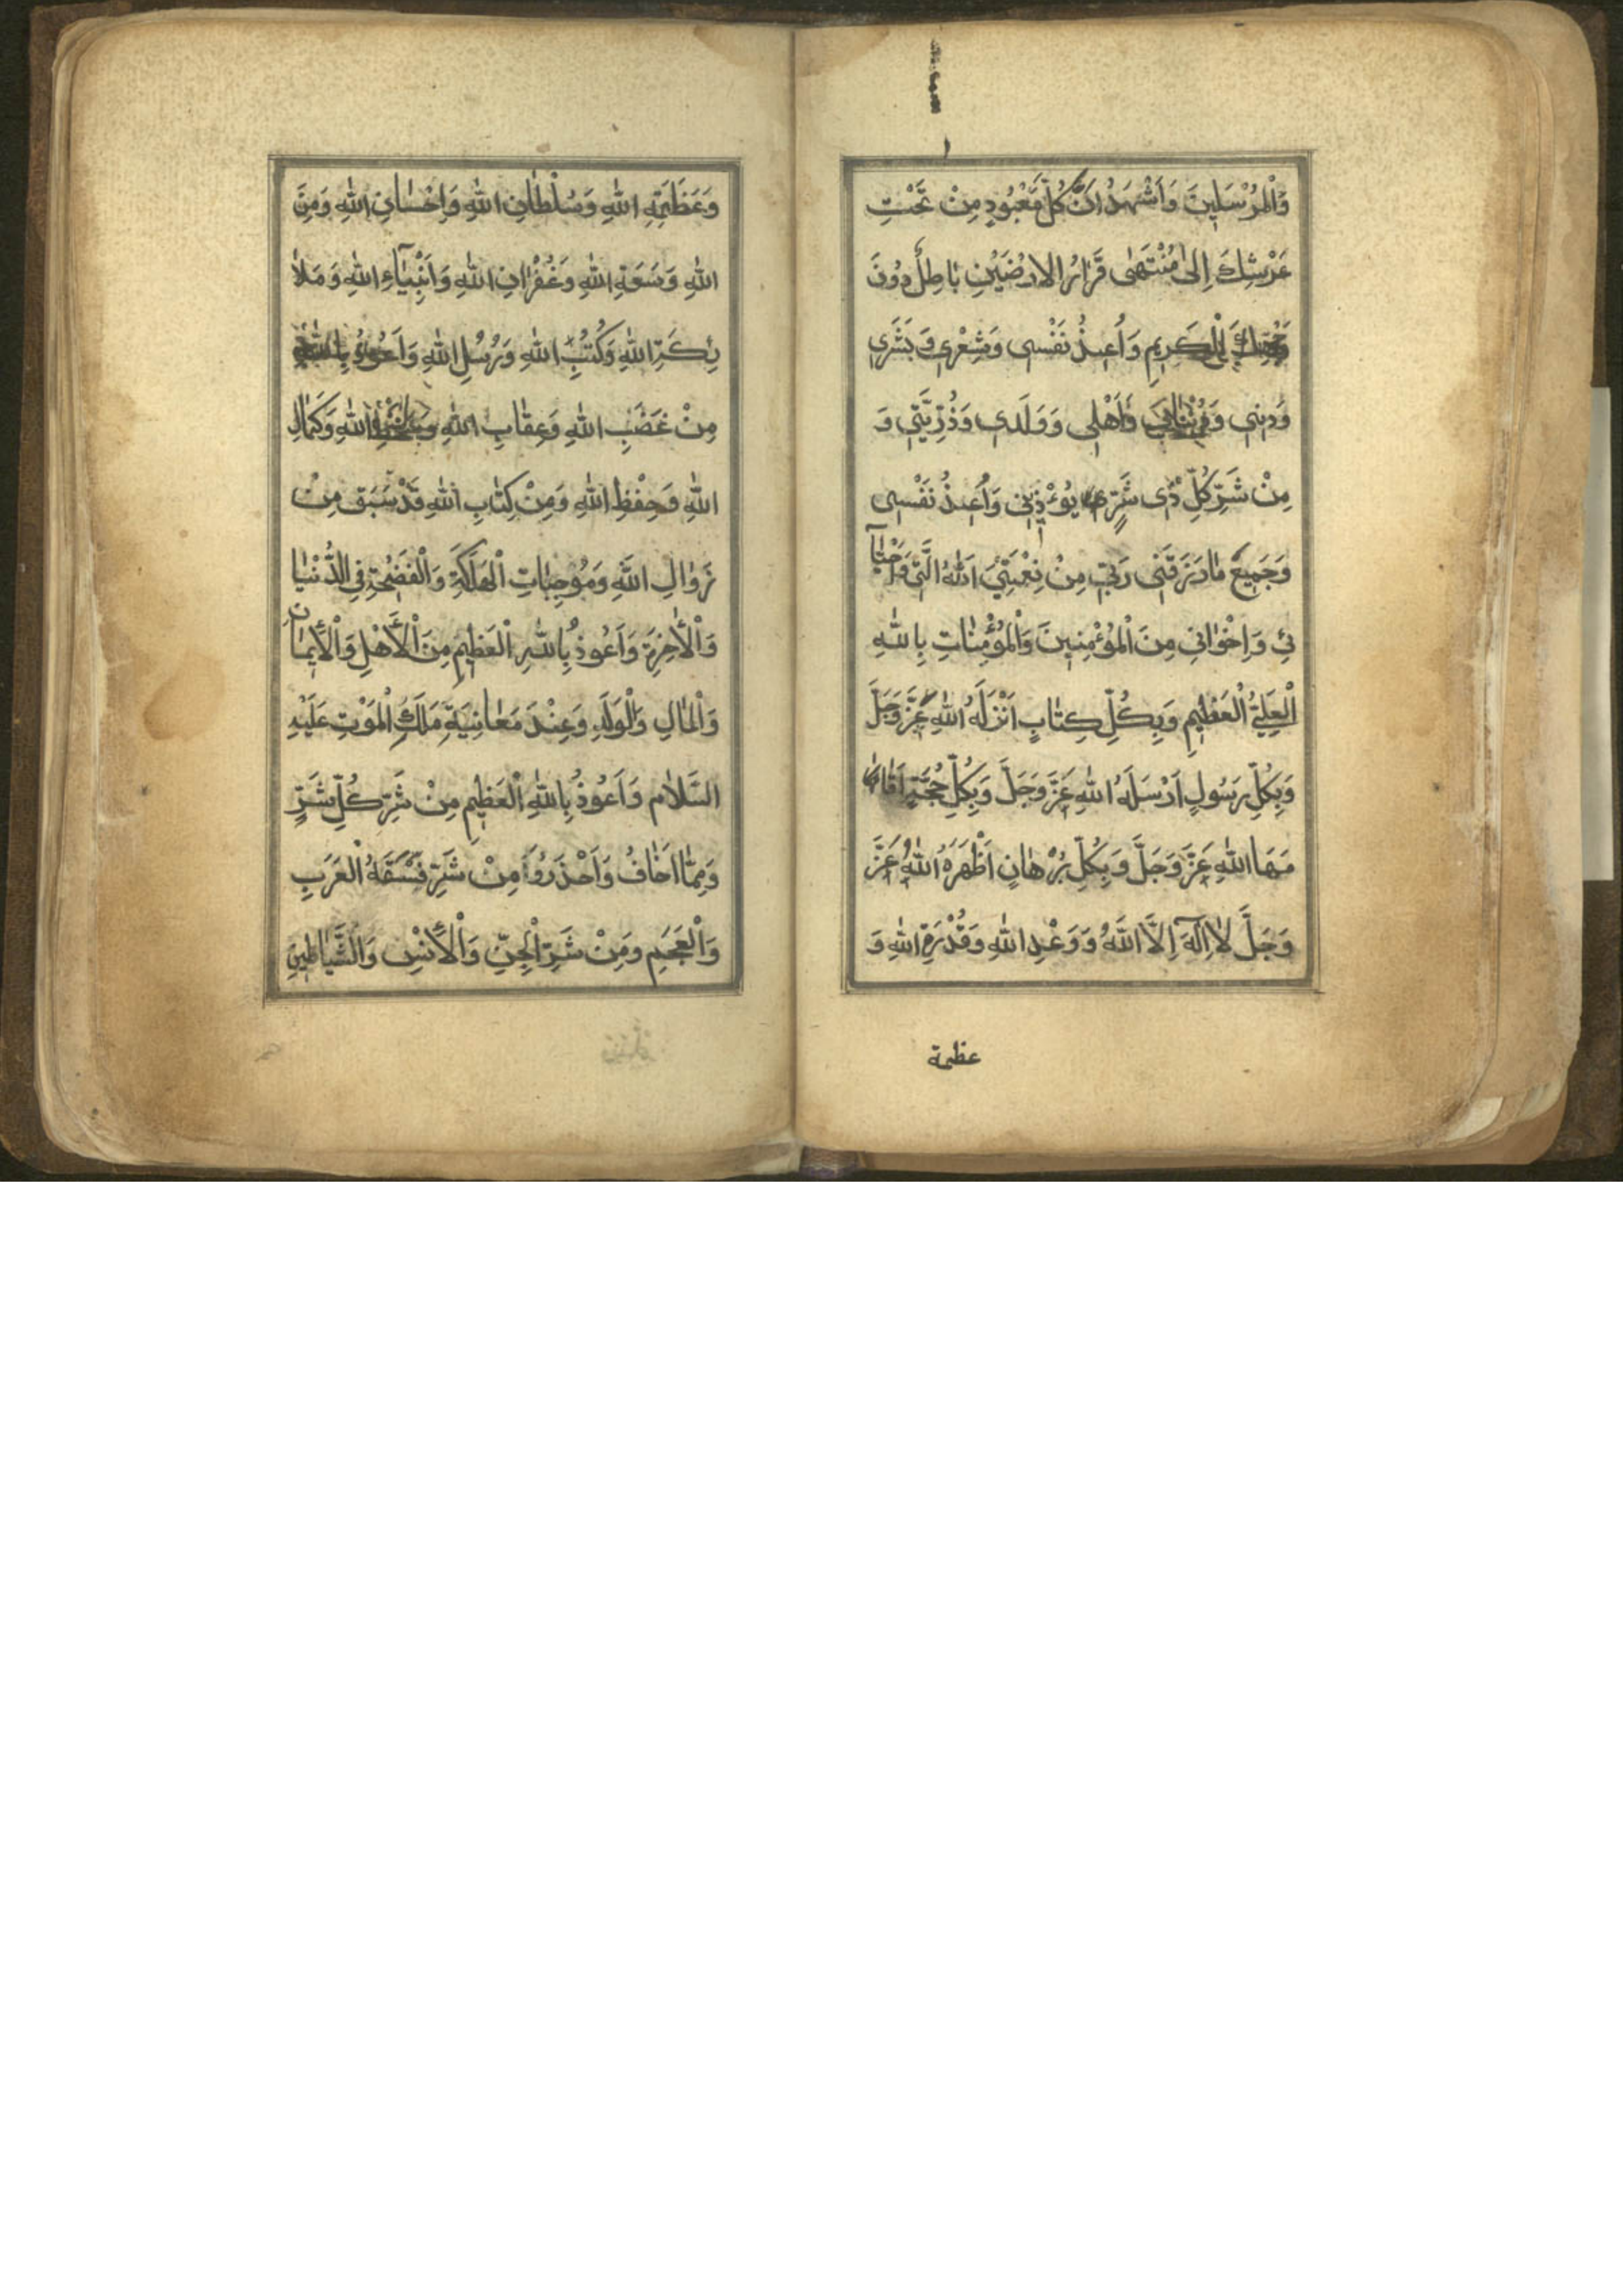 وَالْمُرْسَلِينَ وَاَشْهَدُ اَنَّ كُلَّ مَعْبُودٍ مِنْ تَحْتِ
عَرْشِكَ اِلىٰ مُنْتَهىٰ قَرٰارُ الارَضَيْنِ بٰاطِلٌ دُونَ
الْكَرِيمِ وَاُعيذُ نَفْسى وَشَعْرى وَبَشَرى
وَدينى وَاَهْلى وَوَلَدى وَذُرِّيَّتى وَ
مِنْ شَرِّ كُلِّ ذى شَرٍّ يُؤْذينى وَاُعيذُ نَفْسى
وَجَميعَ مٰا رَزَقَنى رَبّى مِنْ
ئى وَاِخْوٰانى مِنَ الْمُؤْمِنينَ وَالْمُؤْمِنٰاتِ بِاللهِ
الْعَلِيِّ الْعَظيمِ وَبِكُلِّ كِتٰابٍ اَنْزَلَهُ اللهِ عَزَّ وَجَلَّ
وَبِكُلِّ رَسُولٍ اَرْسَلَهُ اللهِ عَزَّ وَجَلَّ وَبِكُلِّ حُجَّةٍ اَقٰا
مَهَا اللهِ عَزَّ وَجَلَّ وَبِكُلِّ بُرْهٰانٍ اَظْهَرَهُ اللهُ عَزَّ
وَجَلَّ لاٰ اِلٓهَ اِلَّا اللهُ وَ وَعْدِ اللهِ وَقُدْرَةِ اللهِ وَ
عظمة
وَعَظَمَةِ اللهِ وَسُلْطٰانِ اللهِ وَاِحْسٰانِ اللهِ وَمِنَ
اللهِ وَسَعَةِ اللهِ وَغُفْرٰانِ اللهِ وَاَنْبِيٰآءِ اللهِ وَمَلاٰ
ئِكَةِ اللهِ وَكُتُبِ اللهِ وَرُسُلِ اللهِ وَاَعُوذُ بِاللهِ
مِنْ غَضَبِ اللهِ وَعِقٰابِ اللهِ اللهِ وَكَمٰالِ
اللهِ وَحِفْظِ اللهِ وَمِنْ كِتٰابِ اللهِ قَدْ سَبَقَ مِنْ
زَوٰالِ اللهِ وَمُوجِبٰاتِ الْهَلَكَةِ وَالْفَضْحَةِ فِى الدُّنْيٰا
وَالْاٰخِرَةِ وَاَعُوذُ بِاللهِ الْعَظيمِ مِنَ الْاَهْلِ وَالْاِيمٰانِ
وَالْمٰالِ وَالْوَلَدِ وَعِنْدَ مَعٰانِيَةِ مَلَكِ الْمَوْتِ عَلَيْهِ
السَّلاٰم وَاَعُوذُ بِاللهِ الْعَظيمِ مِنْ شَرِّ كُلِّ شَرٍّ
وَمِمّٰا اَخٰافُ وَاَحْذَرُوا مِنْ شَرِّ فَسَقَهُ الْعَرَبِ
وَالْعَجَمِ وَمِنْ شَرِّ الْجِنِّ وَالْاِنْسِ وَالشَّيٰاطينِ